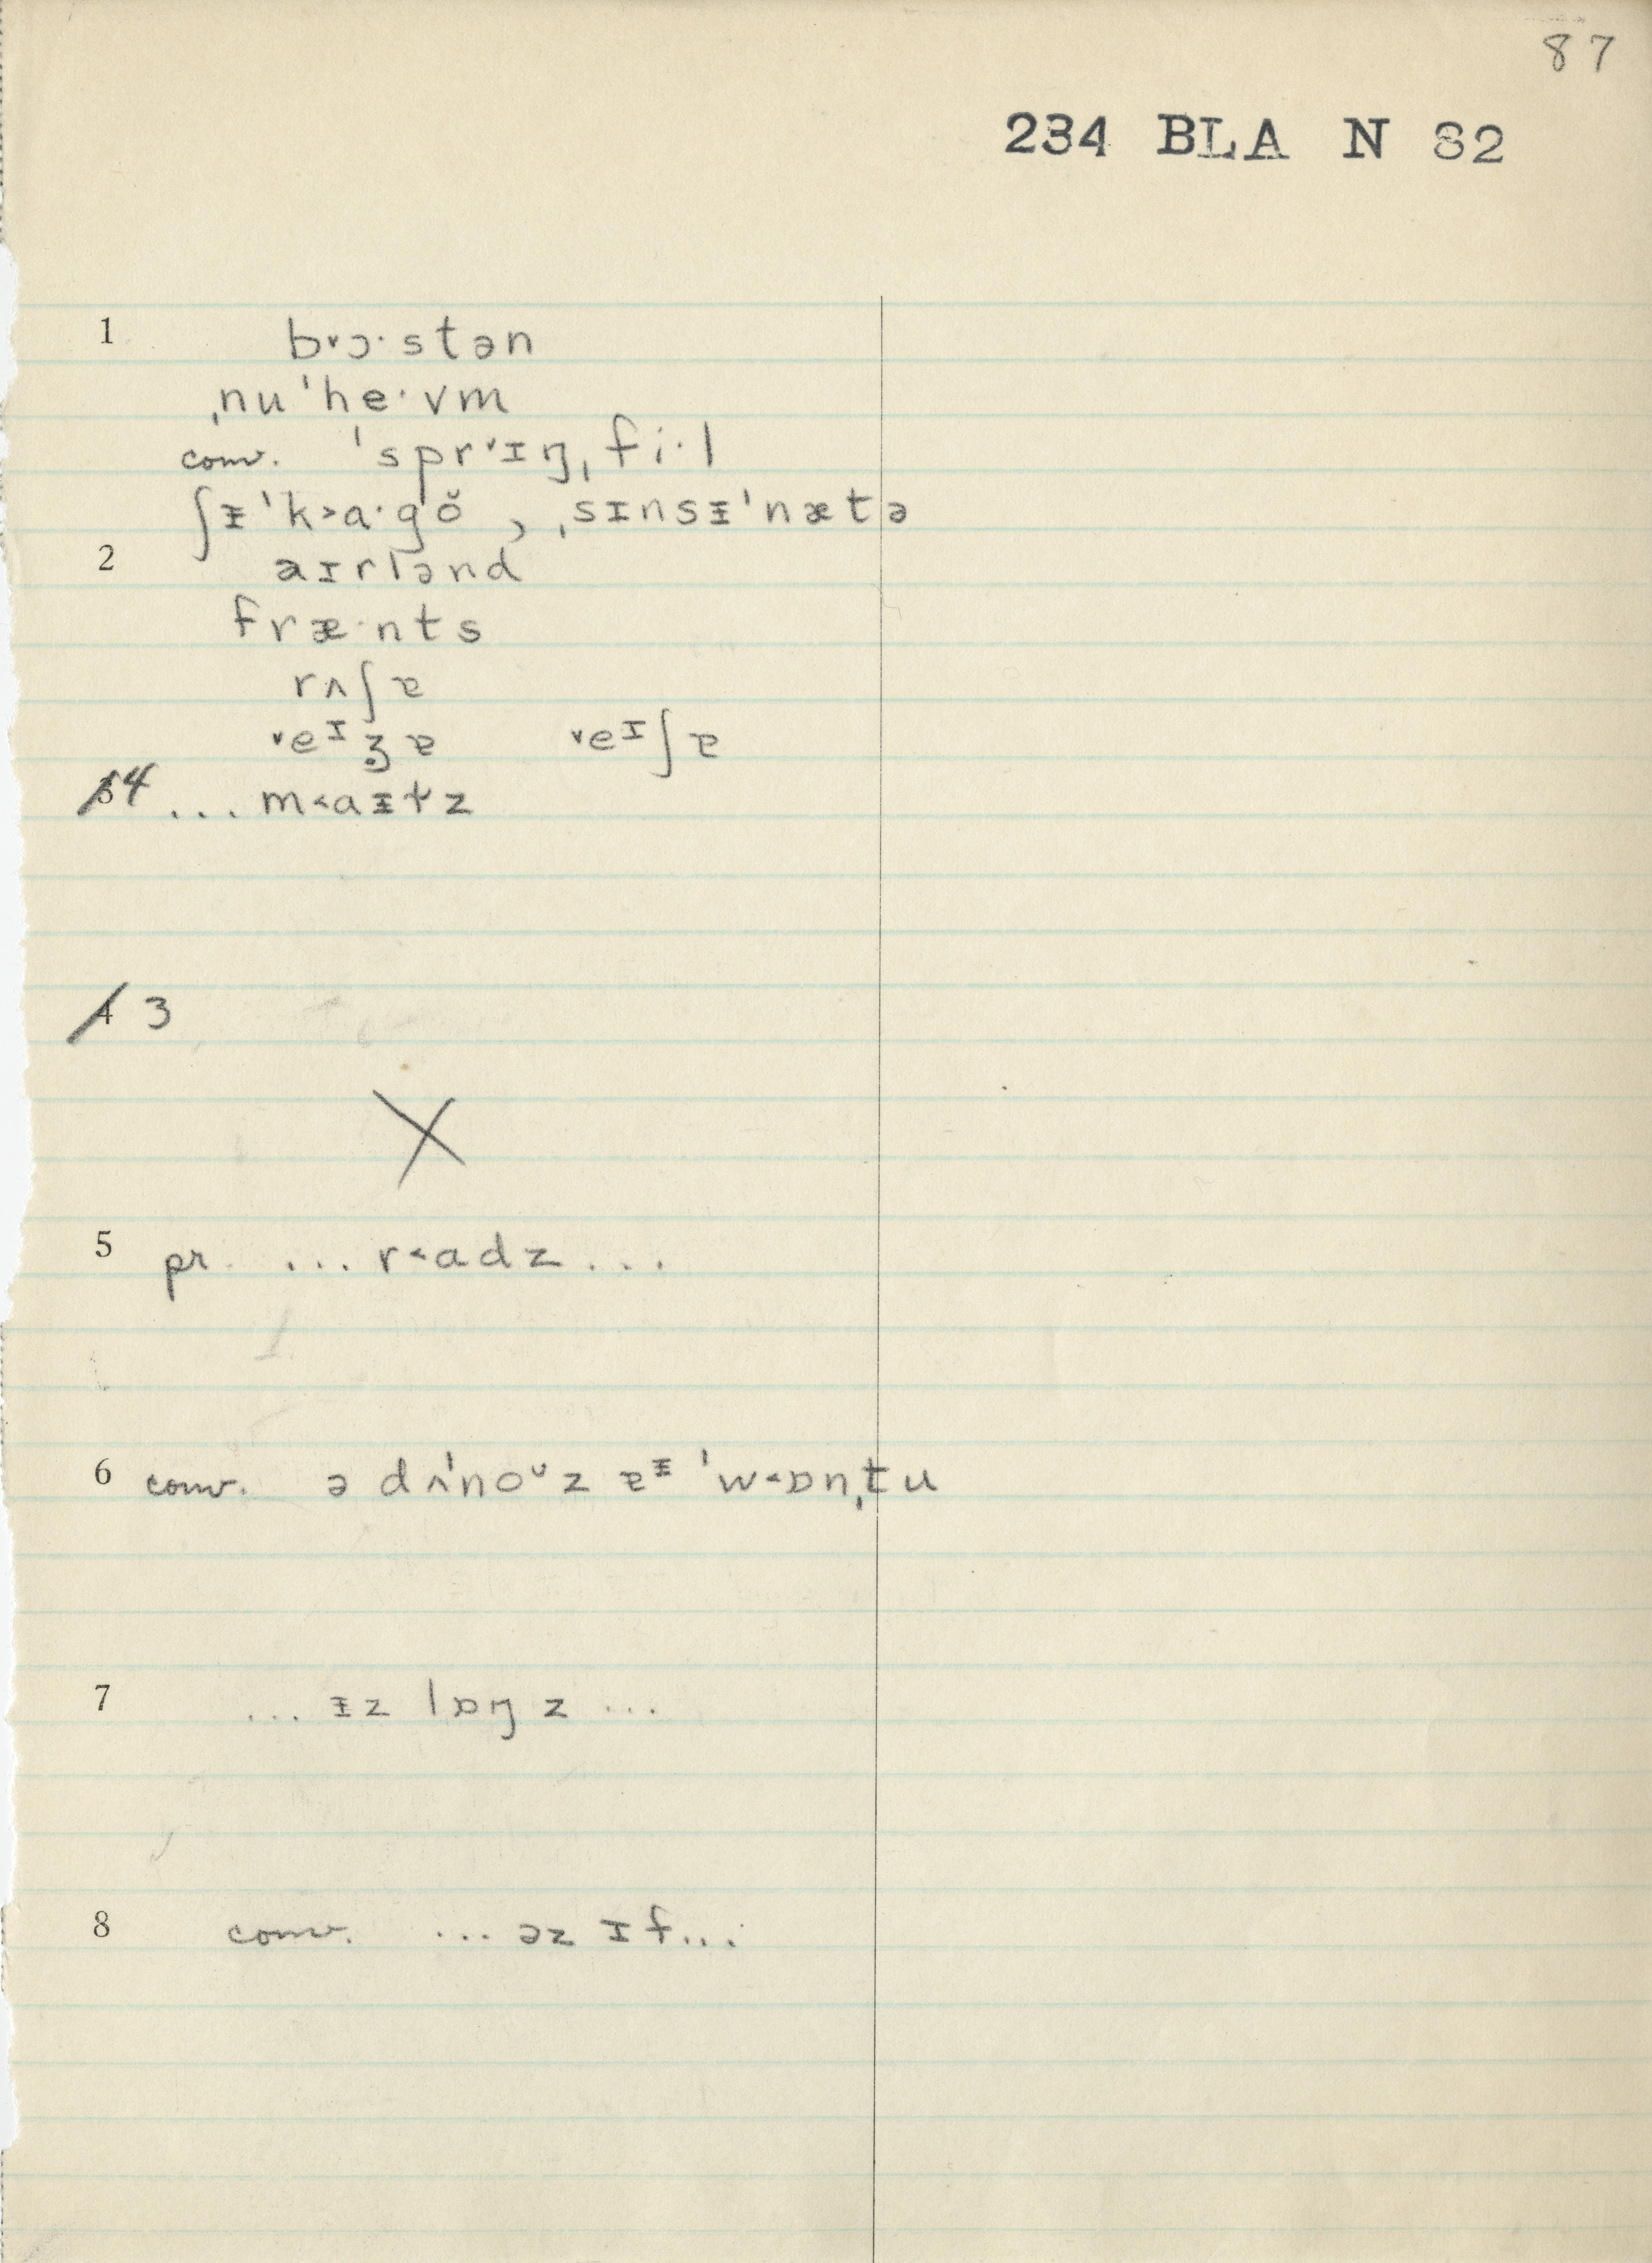 87
234 BLA N 82
1 b˅ɔ·stən
ˌnuˈhe·vm
conv. ˈspr˅ɪŋˌfi·l
ʃᵻˈk˃a·gŏ , ˌsɪnsᵻˈnætə
2 aɪrlənd
fræ·nts
rʌʃɐ
˅eᶦʒɐ ˅eᶦʃɐ
3 4 ... m˂aᵻɫz
4 3
X
5 pr. ... r˂adz ...
6 conv. ə dʌˈnoᵛz ɐᵻ ˈw˂ɒnˌtu
7 ... ᵻz lɒŋz ...
8 conv. ... əz ɪf...